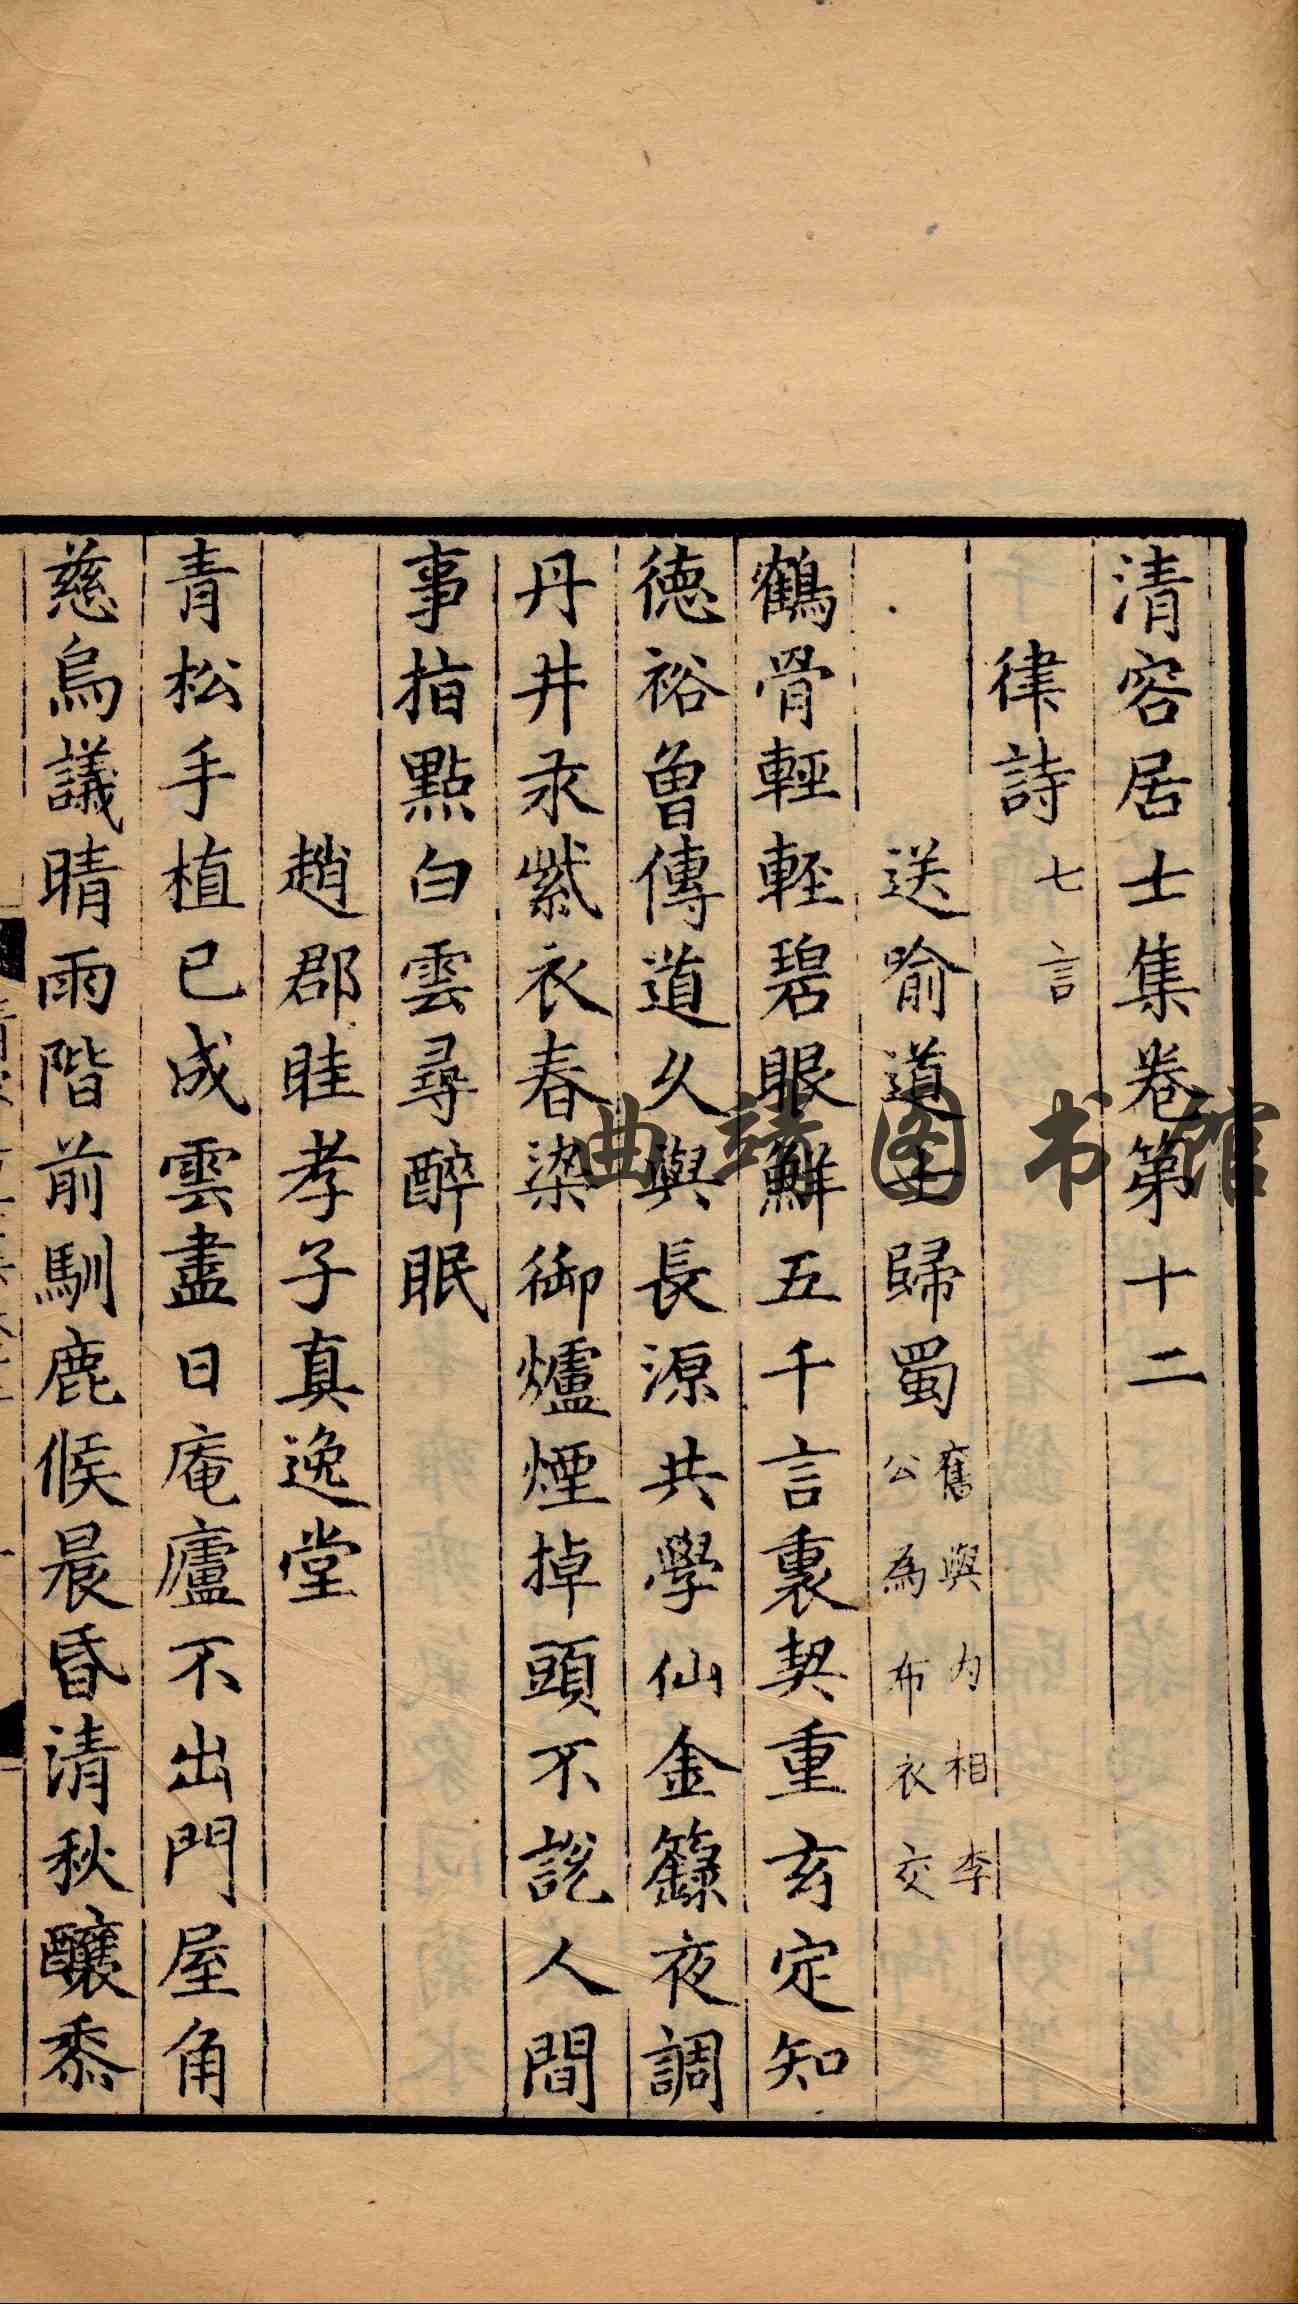 清容居士集卷第十二
律詩七言
送喻道士歸蜀舊與內相李公為布衣交
鶴骨輕輕碧眼鮮五千言裏契重玄定知
德裕曾傳道久與長源共學仙金籙夜調
丹井汞紫衣春染御爐煙掉頭不說人間
事指點白雲尋醉眠
趙郡眭孝子真逸堂
青松手植已成雲盡日庵廬不出門屋角
慈烏議晴雨階前馴鹿候晨昏清秋釀黍
曲靖图书馆